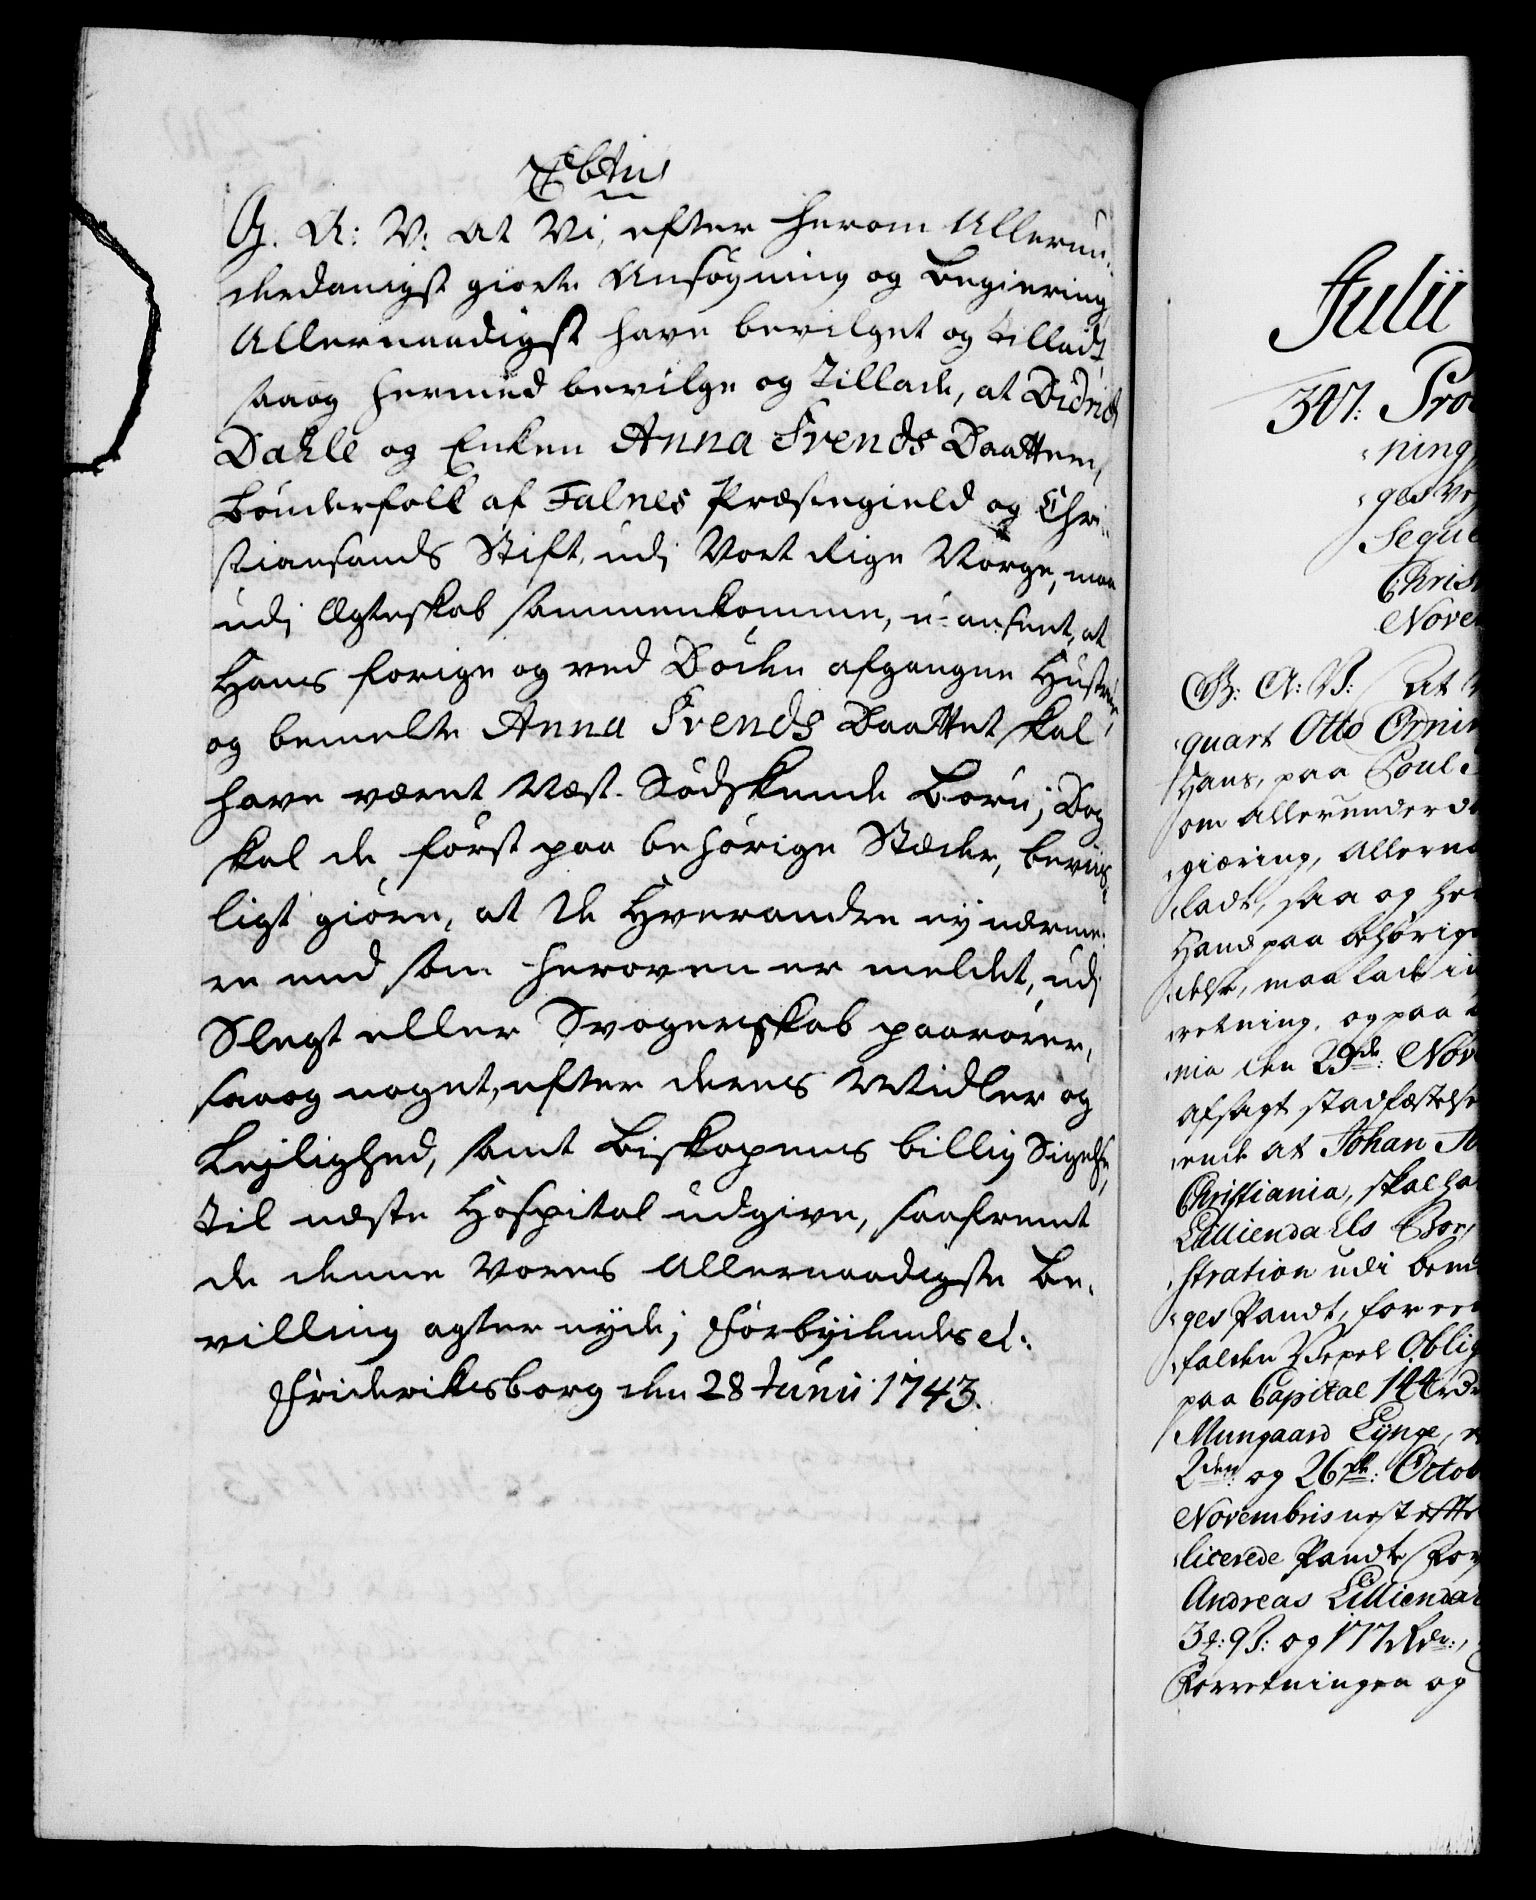 G. A: V: at Vi, efter herom Allerun-
derdanigst giorte Ansøgning og Begiering,
Allernaadigst have bevilget og tilladt,
saaog hermed bevilge og Tillade, at Didrich
Dahle og Enken Anna Svends Daatter,
bønderfolk af Falnes Præstegield og Chri-
stiansands Stift, udj Vort Rige Norge, maa
udj Ægteskab sammenkomme, u-anseet, at
Hans forige og ved Døden afgangne Hustrue,
og bemelte Anna Svends Daatter skal
have været Næst-Sødskende Børn; Dog
skal de først paa behørige Stæder, beviis-
ligt giøre, at de Hverandre ej nærme-
re end som heroven er meldet, udj
Slegt eller Svogerskab paarører,
saaog noget, efter deres Midler og
Lejlighed, samt Biskopens billig Sigelse,
til næste Hospital udgive, saafremt
de denne Vores Allernaadigste Be-
villing agter nyde; Forbydendes etc:
Friderichsborg den 28 Junii 1743.
Julii
307: Pro
ning,
Seque
Christ
Nove
G: A: V: at V
quart Otto Ornin
Hans, paa Poul
om allerunderd
giæring, Allerna
ladt, saa og her
Hand paa behørige
delse, maa lade in
retning, og paa
nia den 29de: Nov
afsagt stadfæstelse
ende at Johan
Christiania, skal ha
Lilliendahls Bor
stration udi bem
ges Pandt, for
falden Vexel Oblig
paa Capital 144 rdr
Mungaard Lynge,
2den og 26de: Octob
Novembris nest efter
licerede Pandte For
Andreas Lilliendal
3 ß: og 177 Rdr:,
Forretningen og